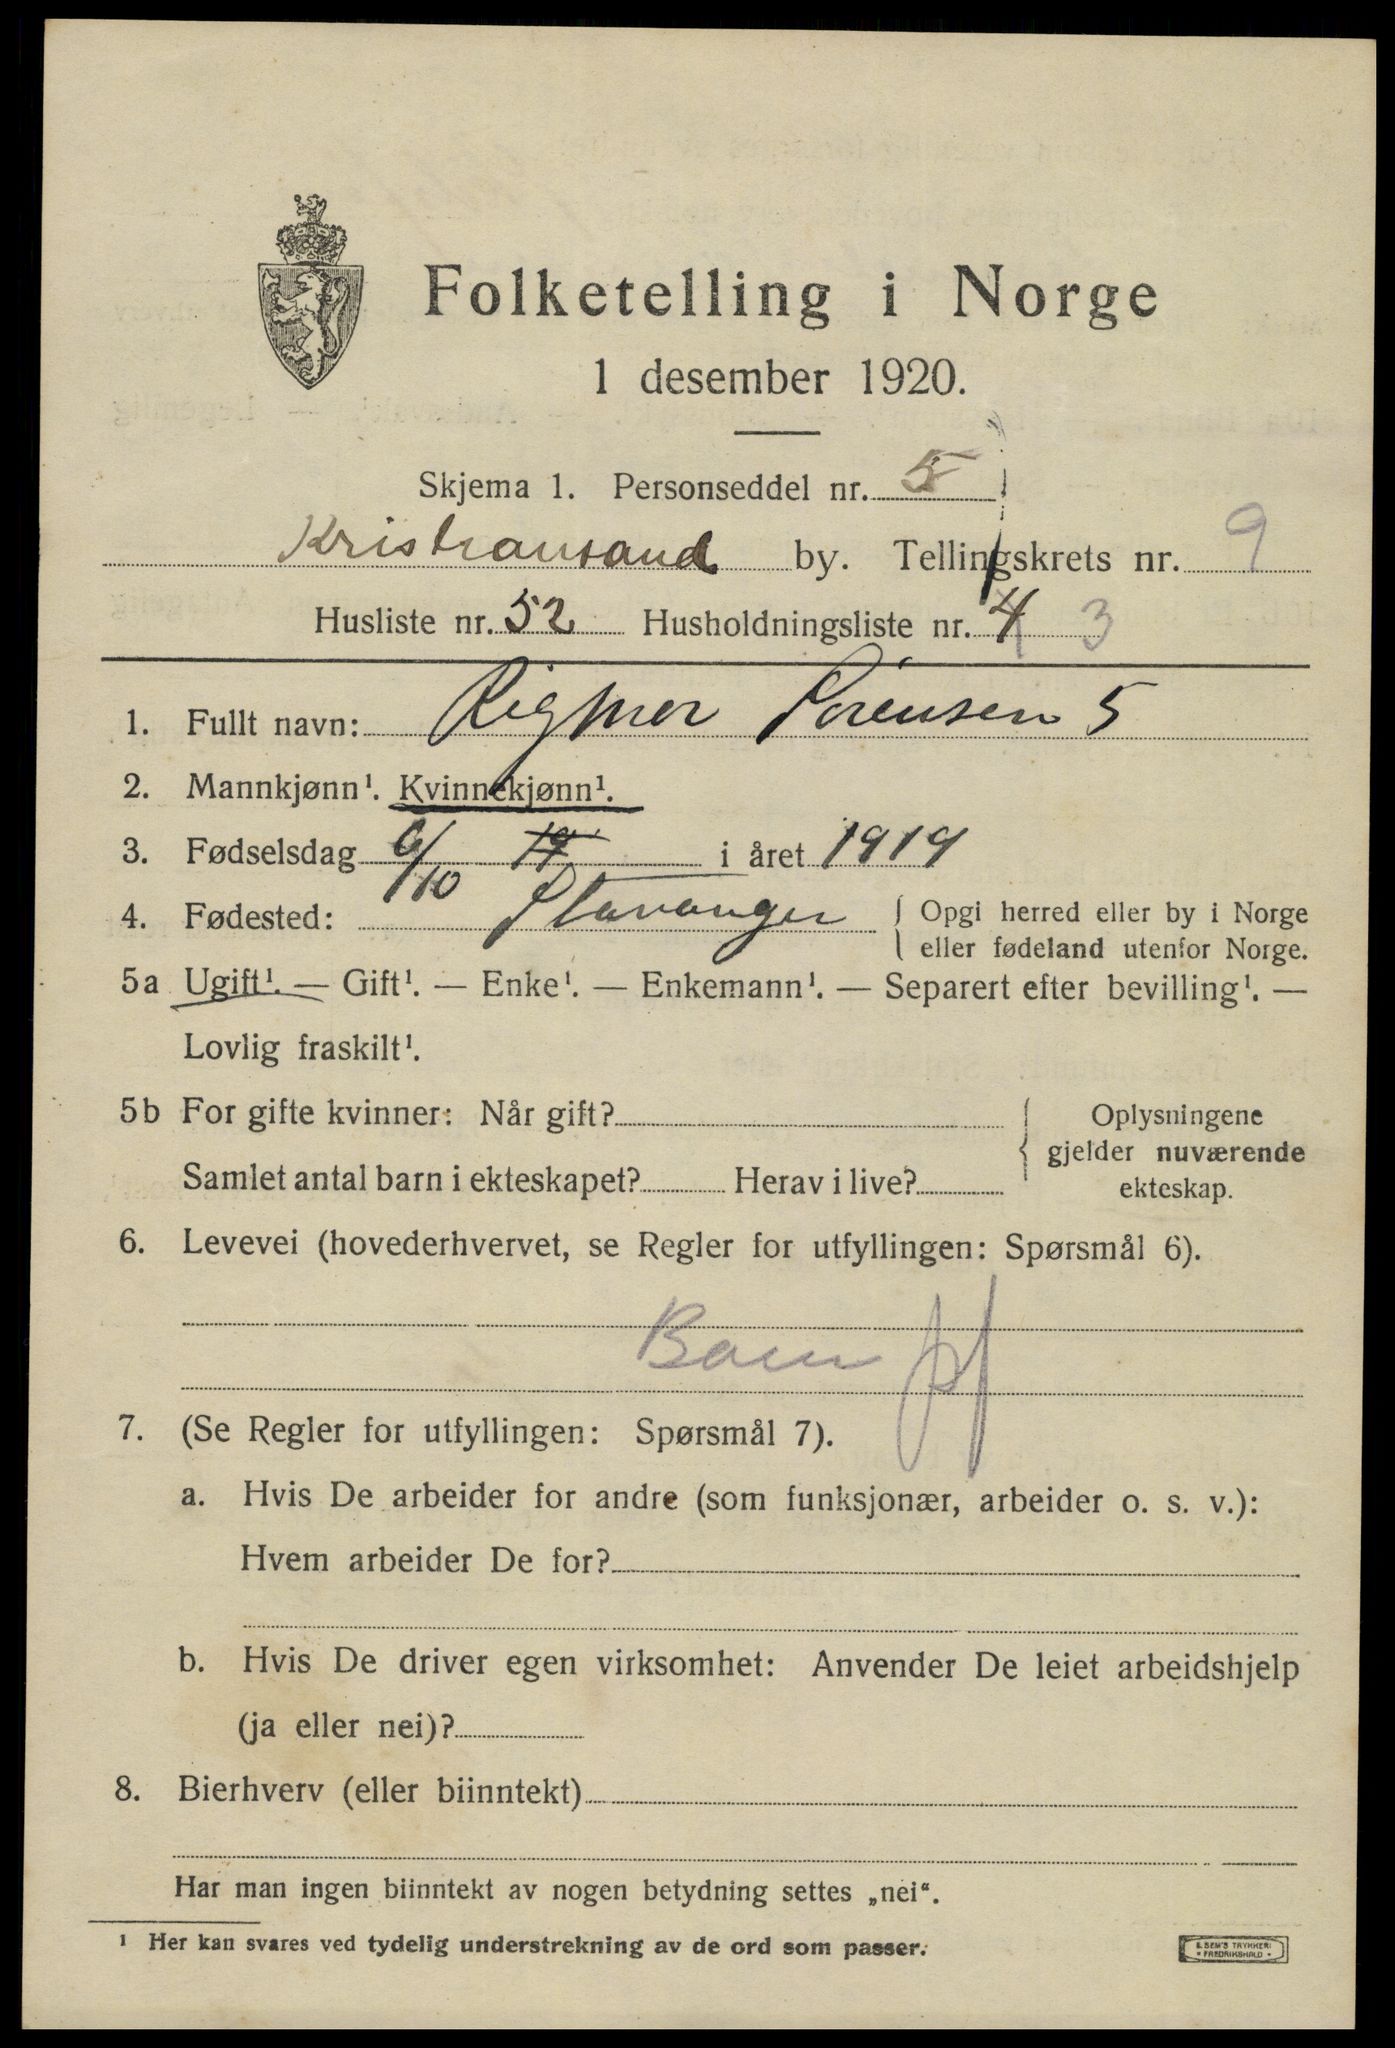 Folketelling i Norge
1 desember 1920.
Skjema 1. Personseddel nr. 5
Kristiansand by. Tellingskrets nr. 9
Husliste nr. 52 Husholdningsliste nr. 4 3
1. Fullt navn: Rigmor Sørensen 5
2. Mannkjønn¹. Kvinnekjønn¹.
3. Fødselsdag 6/10 19 i året 1919
4. Fødested: Stavanger { Opgi herred eller by i Norge
eller fødeland utenfor Norge.
5a Ugift¹. — Gift¹. — Enke¹. — Enkemann¹. — Separert efter bevilling¹. —
Lovlig fraskilt¹.
5b For gifte kvinner: Når gift? { Oplysningene
gjelder nuværende
Samlet antal barn i ekteskapet? Herav i live? ekteskap.
6. Levevei (hovederhvervet, se Regler for utfyllingen: Spørsmål 6).
Barn
7. (Se Regler for utfyllingen: Spørsmål 7).
a. Hvis De arbeider for andre (som funksjonær, arbeider o. s. v.):
Hvem arbeider De for?
b. Hvis De driver egen virksomhet: Anvender De leiet arbeidshjelp
(ja eller nei)?
8. Bierhverv (eller biinntekt)
Har man ingen biinntekt av nogen betydning settes „nei“.
¹ Her kan svares ved tydelig understrekning av de ord som passer.
E. SEM'S TRYKKERI
• FREDRIKSHALD •